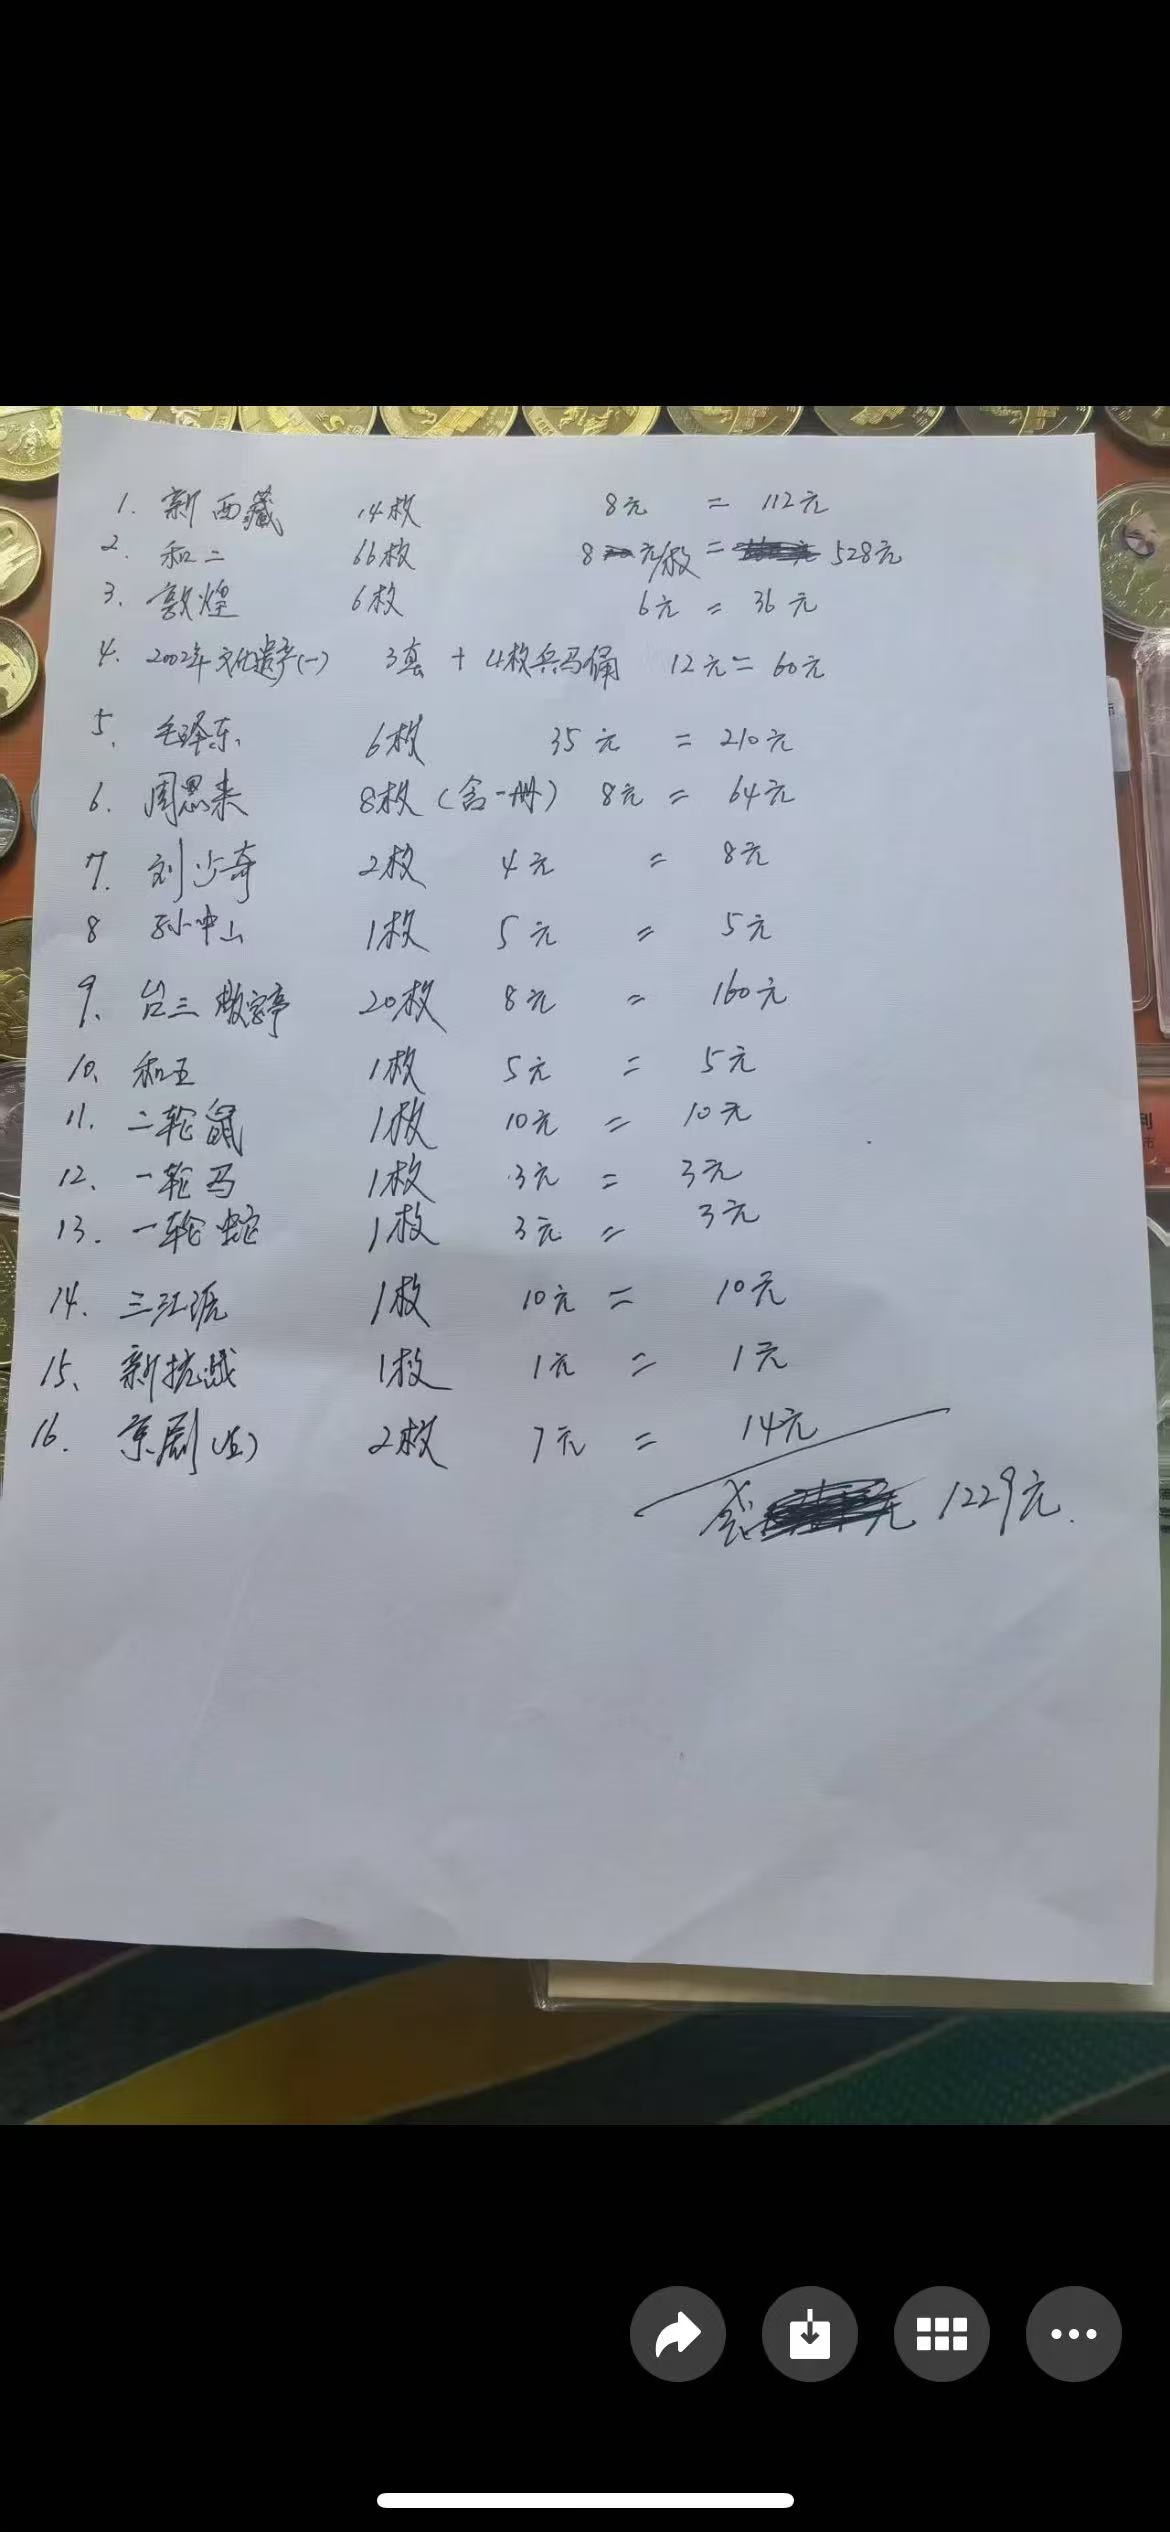 1. 新西藏 14枚 8元 = 112元
2. 和二 66枚 8元/枚 = 528元
3. 敦煌 6枚 6元 = 36元
4. 2002年文化遗产(一) 3套 + 4枚兵马俑 12元 = 60元
5、毛泽东 6枚 35元 = 210元
6. 周恩来 8枚(含一册) 8元 = 64元
7. 刘少奇 2枚 4元 = 8元
8 孙中山 1枚 5元 = 5元
9、台三敬字亭 20枚 8元 = 160元
10、和五 1枚 5元 = 5元
11. 二轮鼠 1枚 10元 = 10元
12、一轮马 1枚 3元 = 3元
13. 一轮蛇 1枚 3元 = 3元
14. 三江源 1枚 10元 = 10元
15、新抗战 1枚 1元 = 1元
16. 京剧(生) 2枚 7元 = 14元
1229元.